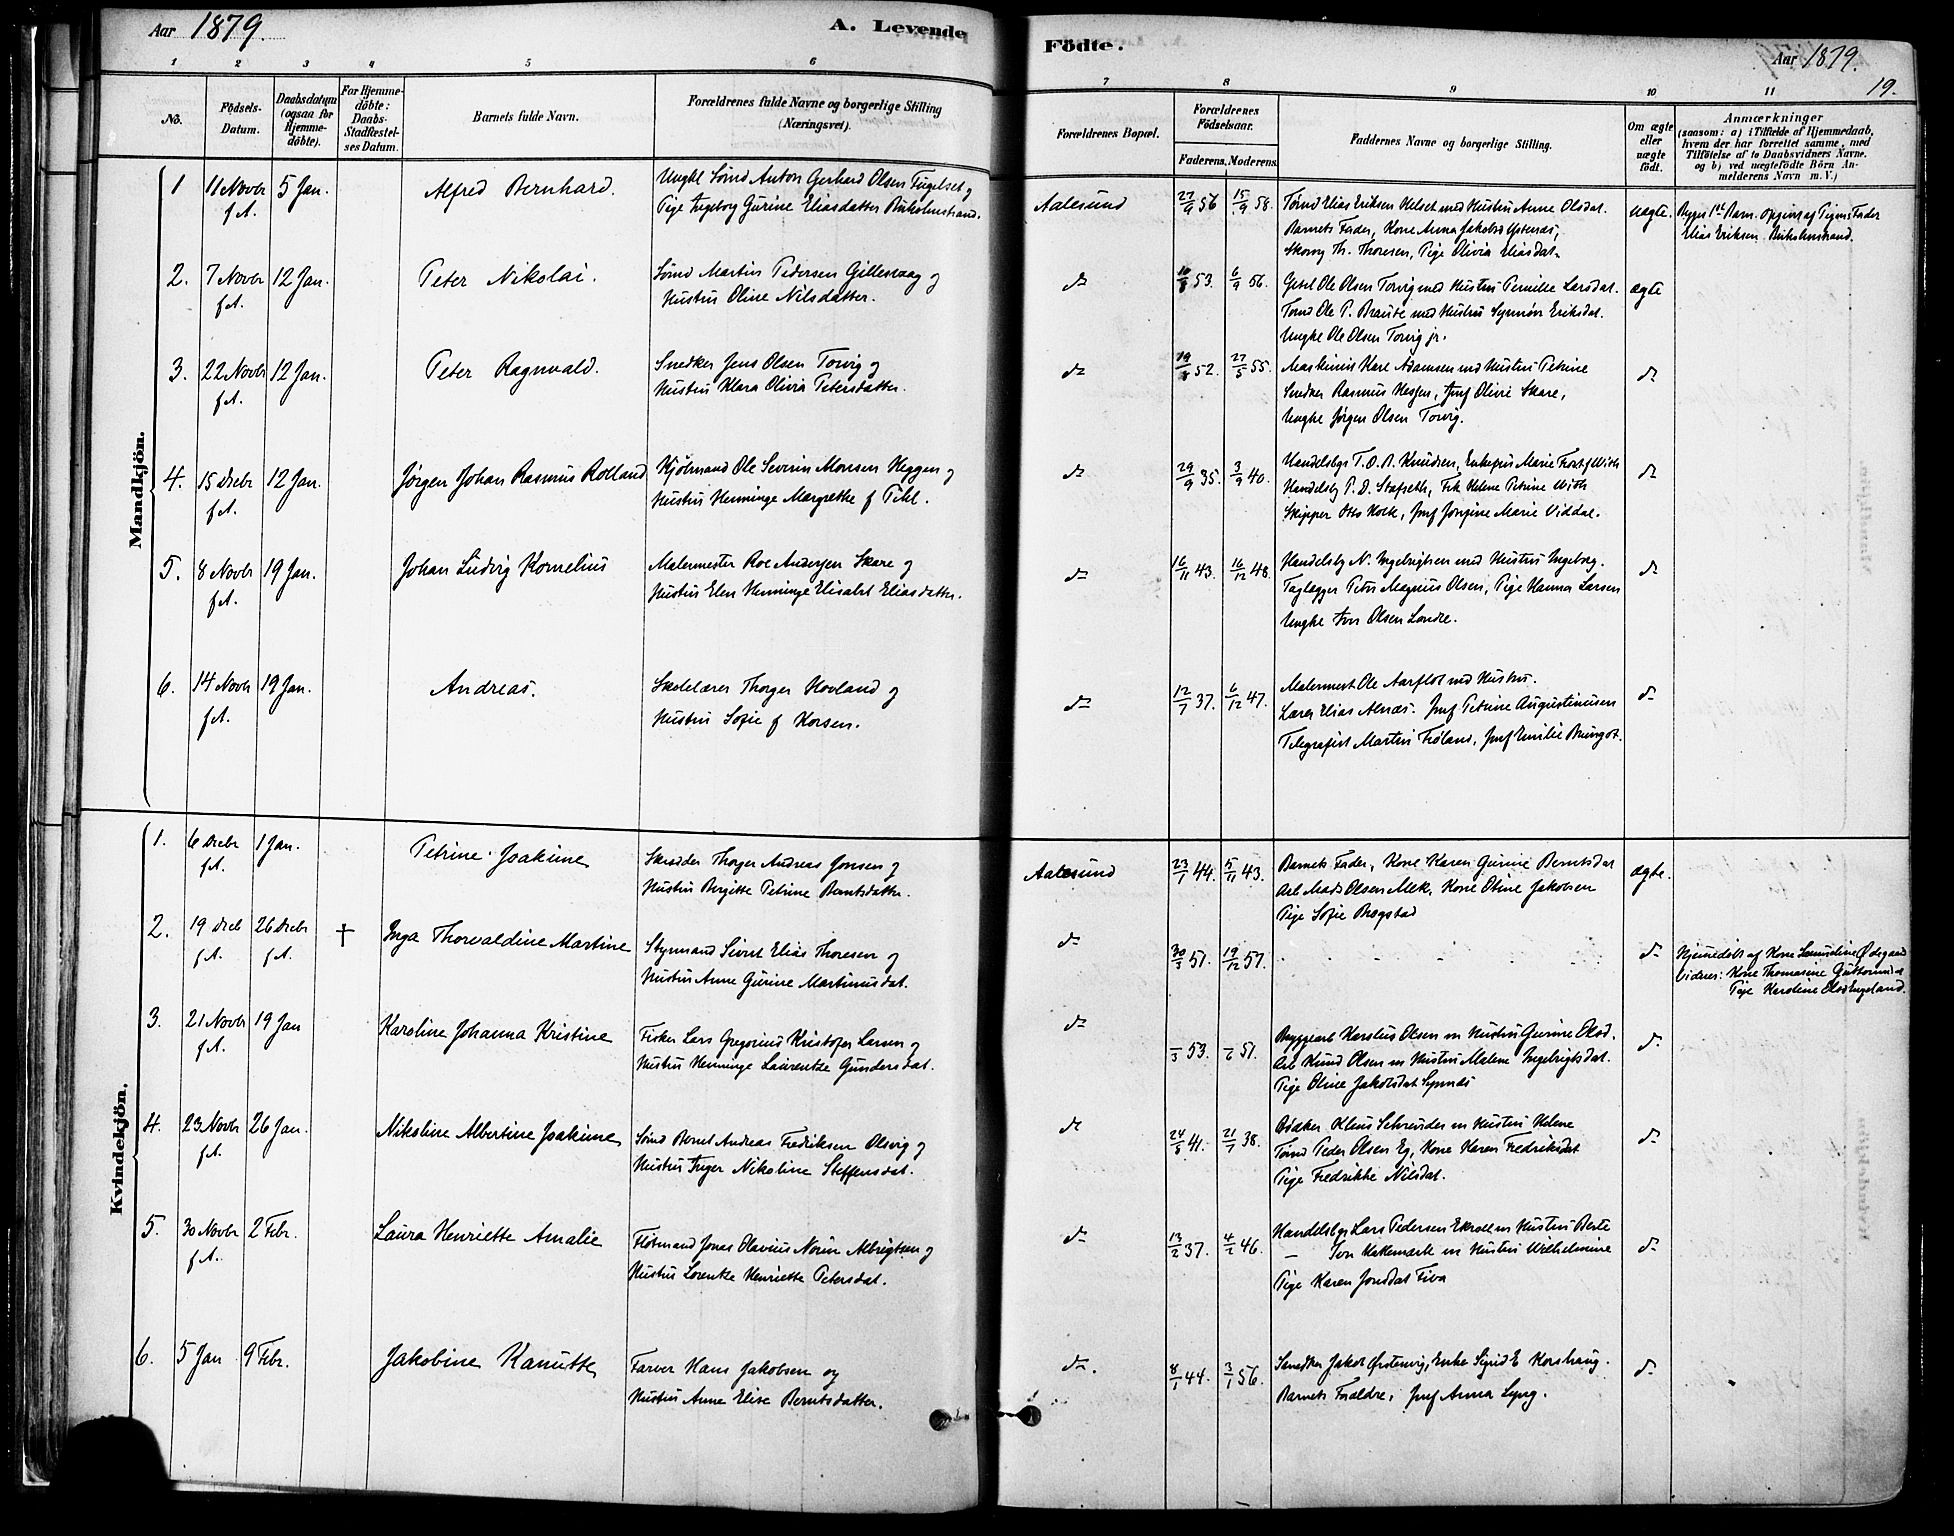 Aar 1879. A. Levende
1 2 3 4 5 6
No. Födsels-Datum. Daabsdatum (ogsaa for Hjemmedöbte). For Hjemmedöbte: Daabs-Stadfæstelses Datum. Barnets fulde Navn. Forældrenes fulde Navne og borgerlige Stilling (Næringsvei).
Mandkjön.
1 11 Novbr f.A. 5 Jan. Alfred Bernhard. Ungkl Sömd Anton Gerhard Olsen Fugelset og
Pige Ingeborg Gurine Eliasdatter Birkholmstrand.
2. 7 Novbr f.A. 12 Jan. Peter Nikolai. Sömd Martin Pedersen Gillesvaag og
Hustru Oline Nilsdatter.
3. 22 Novbr f.A. 12 Jan. Peter Ragnvald. Snedker Jens Olsen Torvig og
Hustru Klara Olivia Petersdatter.
4. 15 Decbr f.A. 12 Jan. Jörgen Johan Rasmus Rolland Kjölmand Ole Severin Monsen Heggen og
Hustru Henninge Margrethe f
5. 8 Novbr f.A. 19 Jan. Johan Ludvig Kornelius Malermester Roe Andersen Skare og
Hustru Elen Henninge Elisabet Eliasdatter.
6. 14 Novbr f.A. 19 Jan. Andreas. Skolelærer Thorger Hovland og
Hustru Sofie f Korsen.
Kvindekjön.
1. 6 Decbr f.A. 1 Jan. Petrine Joakime Skrædder Thorger Andreas Jonsen og
Hustru Birgitte Petrine Berntsdatter.
2. 19 Decb f.A. 26 Decbr f.A. † Inga Thorvaldine Martine Styrmand Sivert Elias Thoresen og
Hustru Anne Gurine Martinusdat.
3. 21 Novbr f.A. 19 Jan Karoline Johanna Kristine Fisker Lars Gregorius Kristofer Larsen og
Hustru Henninge Laurentze Gundersdat.
4. 23 Novbr f.A. 26 Jan. Nikoline Albertine Joakime Sömd Bernt Andreas Fredriksen Olsvig og
Hustru Inger Nikoline Steffensdat.
5. 30 Novbr f.A. 2 Febr. Laura Henriette Amalie Flötmand Jonas Olavius Norin Albrigtsen og
Hustru Lorentze Henriette Petersdat.
6. 5 Jan 9 Febr. Jakobine Kanutte Farver Hans Jakobsen og
Hustru Anne Elise Berntsdatter.
Födte. Aar 1879.
19.
7 8 9 10 11
Forældrenes Bopæl. Forældrenes Födselsaar. Faderens. Moderens. Faddernes Navne og borgerlige Stilling. Om ægte eller uægte födt. Anmærkninger (saasom: a) i Tilfælde af Hjemmedaab, hvem der har forrettet samme, med Tilföielse af to Daabsvidners Navne, og b) ved uægtefödte Börn Anmelderens Navn m. V.)
Aalesund 27/9 56 15/9 58. Tömd Elias Eriksen Helset med Hustru Anne Olsdat. uægte. Begges 1ste Barn. Opgivet af Pigens Fader
Barnets Fader, Kone Anna Jakobsd Ystenæs, Elias Eriksen Birkholmstrand.
Th. Thoresen, Pige Olivia Eliasdat.
do 53. 6/9 56. Gesel Ole Olsen Torvig med Hustru Pernille Larsdat. ægte
Tömd Ole P. Braute med Hustru Synnöv Eriksdat.
Ungke Ole Olsen Torvig jr.
do 52. 27/5 55. Maskinist Kare Adamsen med Hustru Petrine do
Snedker Rasmus Hessen, Jmf Olivie Skare,
Ungke Jörgen Olsen Torvig.
do 29/9 35. 3/9 40. Handelsby T. O. A. Knudsen, Enkefru Marie f With do
Handelsby P. D. Stafseth, Frk Helene Petrine With
Skipper Otto Holk, Jmf Jörgine Marie Viddal.
do 16/11 43. 16/12 48. Handelsby N. Ingebrigtsen med Hustru Ingeborg. do
Taglægger Peter Magnus Olsen, Pige Hanna Larsen
Ungke Iver Olsen Londre.
do 12/7 37. 6/12 47. Malermest Ole Aarflot med Hustru. do
Lærer Elias Alnæs. Jmf Petrine Augustinusen
Telegrafist Martin Fröland, Jmf Emilie Brungot.
Aalesund 23/1 44. 5/11 43. Barnets Fader, Kone Karen Gurine Berntsdat ægte.
Arb Mads Olsen Mek, Kone Oline Jakobsen
Pige Sofie Brogstad
do 30/3 51. 19/12 57. do Hjemmedöbt af Kone Ödegaard
Vidner: Kone Thomasine Guttormsd
Pige Karoline Olsd Engeland.
do /3 53. /6 51. Bryggearb Karolus Olsen m Hustru Gurine Olsd. do
Arb Knud Olsen m Hustru Malene Ingebrigtsdat.
Pige Oline Jakobsdat Synnæs
do 24/8 41. 21/7 38. Bödker Klaus Schröuder m Hustru Helene do
Tömd Peder Olsen Eg, Kone Karen Fredriksdat
Pige Fredrikke Nilsdat.
do 13/2 37. 4/2 46. Handelsby Lars Pedersen Ekroll m Hustru Berte do
— Iver Kattemark m Hustru Wilhelmine
Pige Karen Jonsdat Fiva
do. 8/1 44. 3/1 56. Snedker Jakob Örstenvig, Enke Sigrid E Korshaug. do
Barnets Forældre, Jmf Anna Lyng.